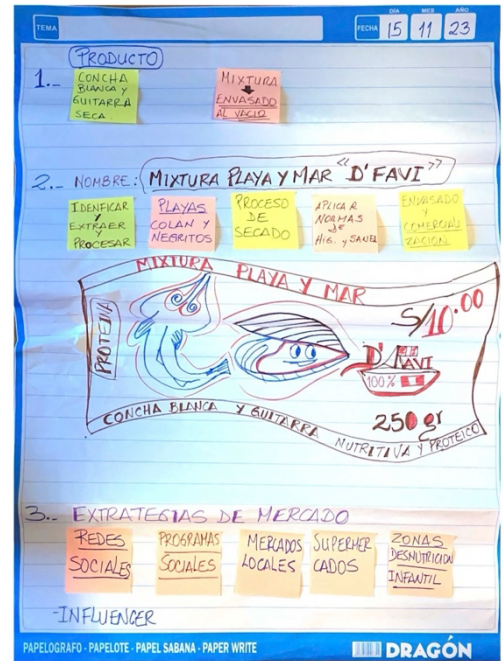 TEMA
FECHA
DÍA MES AÑO
15 11 23
PRODUCTO
1.-
CONCHA
BLANCA Y
GUITARRA
SECA.
MIXTURA
ENVASADO
AL VACIO
2.- NOMBRE: MIXTURA PLAYA Y MAR "D'FAVI"
IDENFICAR
Y
EXTRAER
Y
PROCESAR
PLAYAS
COLAN Y
NEGRITOS
PROCESO
DE
SECADO
APLICAR
NORMAS
DE
HIG. y SANID
ENVASADO
Y
COMERCIALI
ZACION
MIXTURA PLAYA Y MAR
PROTEINA
S/10.00
D'FAVI
100%
250 gr
CONCHA BLANCA Y GUITARRA NUTRITIVA Y PROTEICO
3.- EXTRATEGIAS DE MERCADO
REDES
SOCIALES
PROGRAMAS
SOCIALES
MERCADOS
LOCALES
SUPERMER
CADOS
ZONAS
DESNUTRICION
INFANTIL
-INFLUENCER
PAPELOGRAFO - PAPELOTE - PAPEL SABANA - PAPER WRITE
DRAGÓN